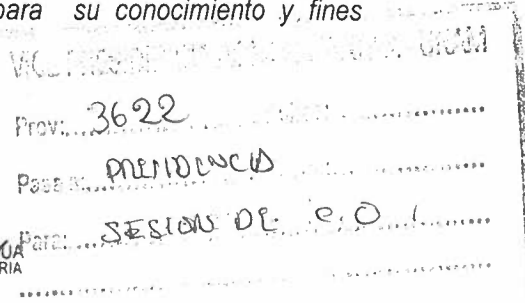 para su conocimiento y fines
Prov: 3622
Pase a: PRESIDENCIA
Para: SESION DE C.O.
UA
RIA